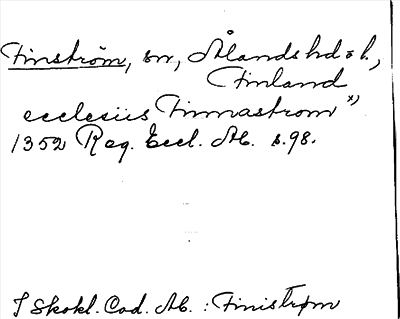 Finström, sn, Ålands hd o. l.,
Finland
ecclesiis Finnastrom x)
1352 Reg. Eccl. Ab. s. 98.
I Skokl. Cod. Ab. : Finistrøm